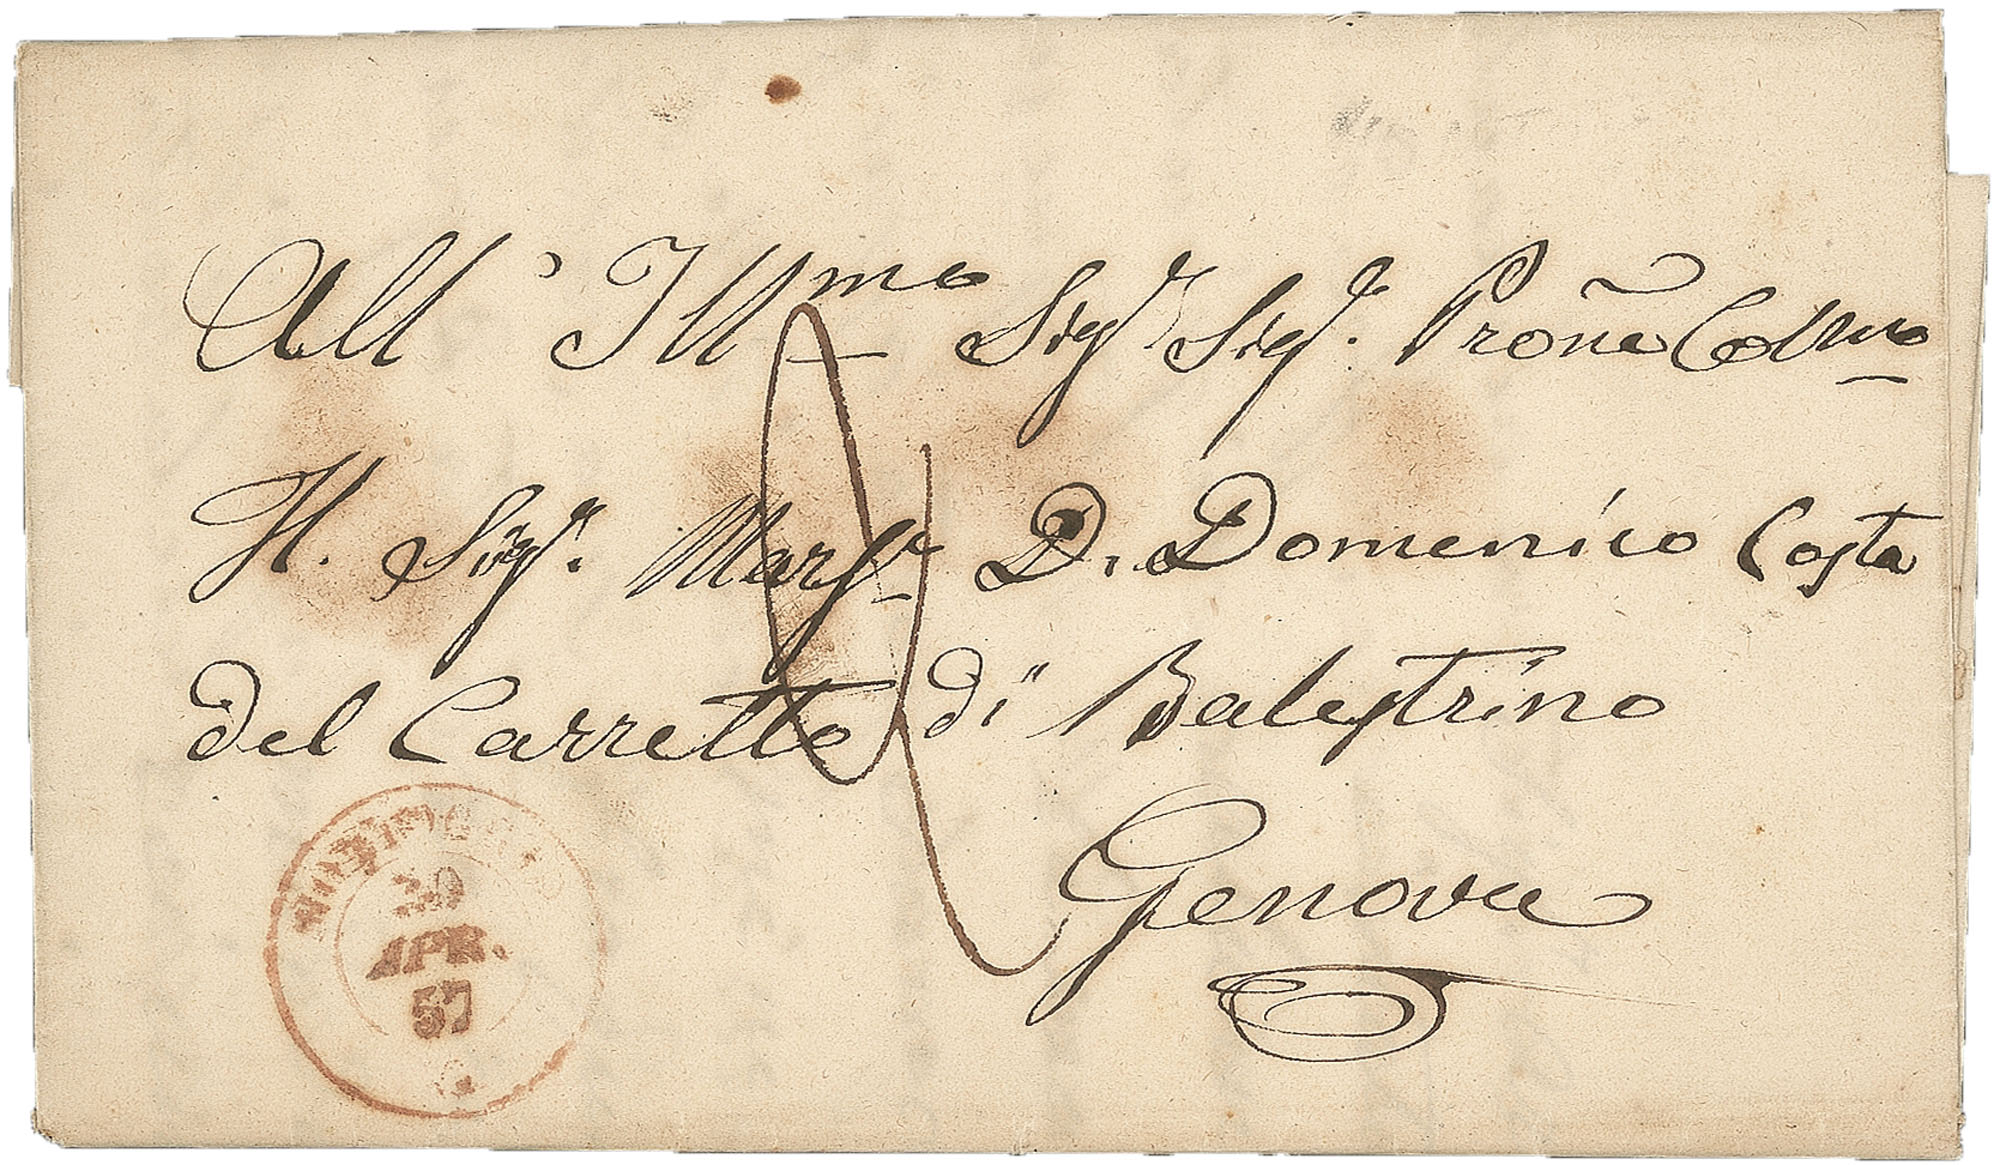 All' Ill.mo Sigr. Sigr. Proñe Colmo
Il Sigr. Marse D. Domenico Costa
del Carretto di Balestrino
Genova
20
APR.
57